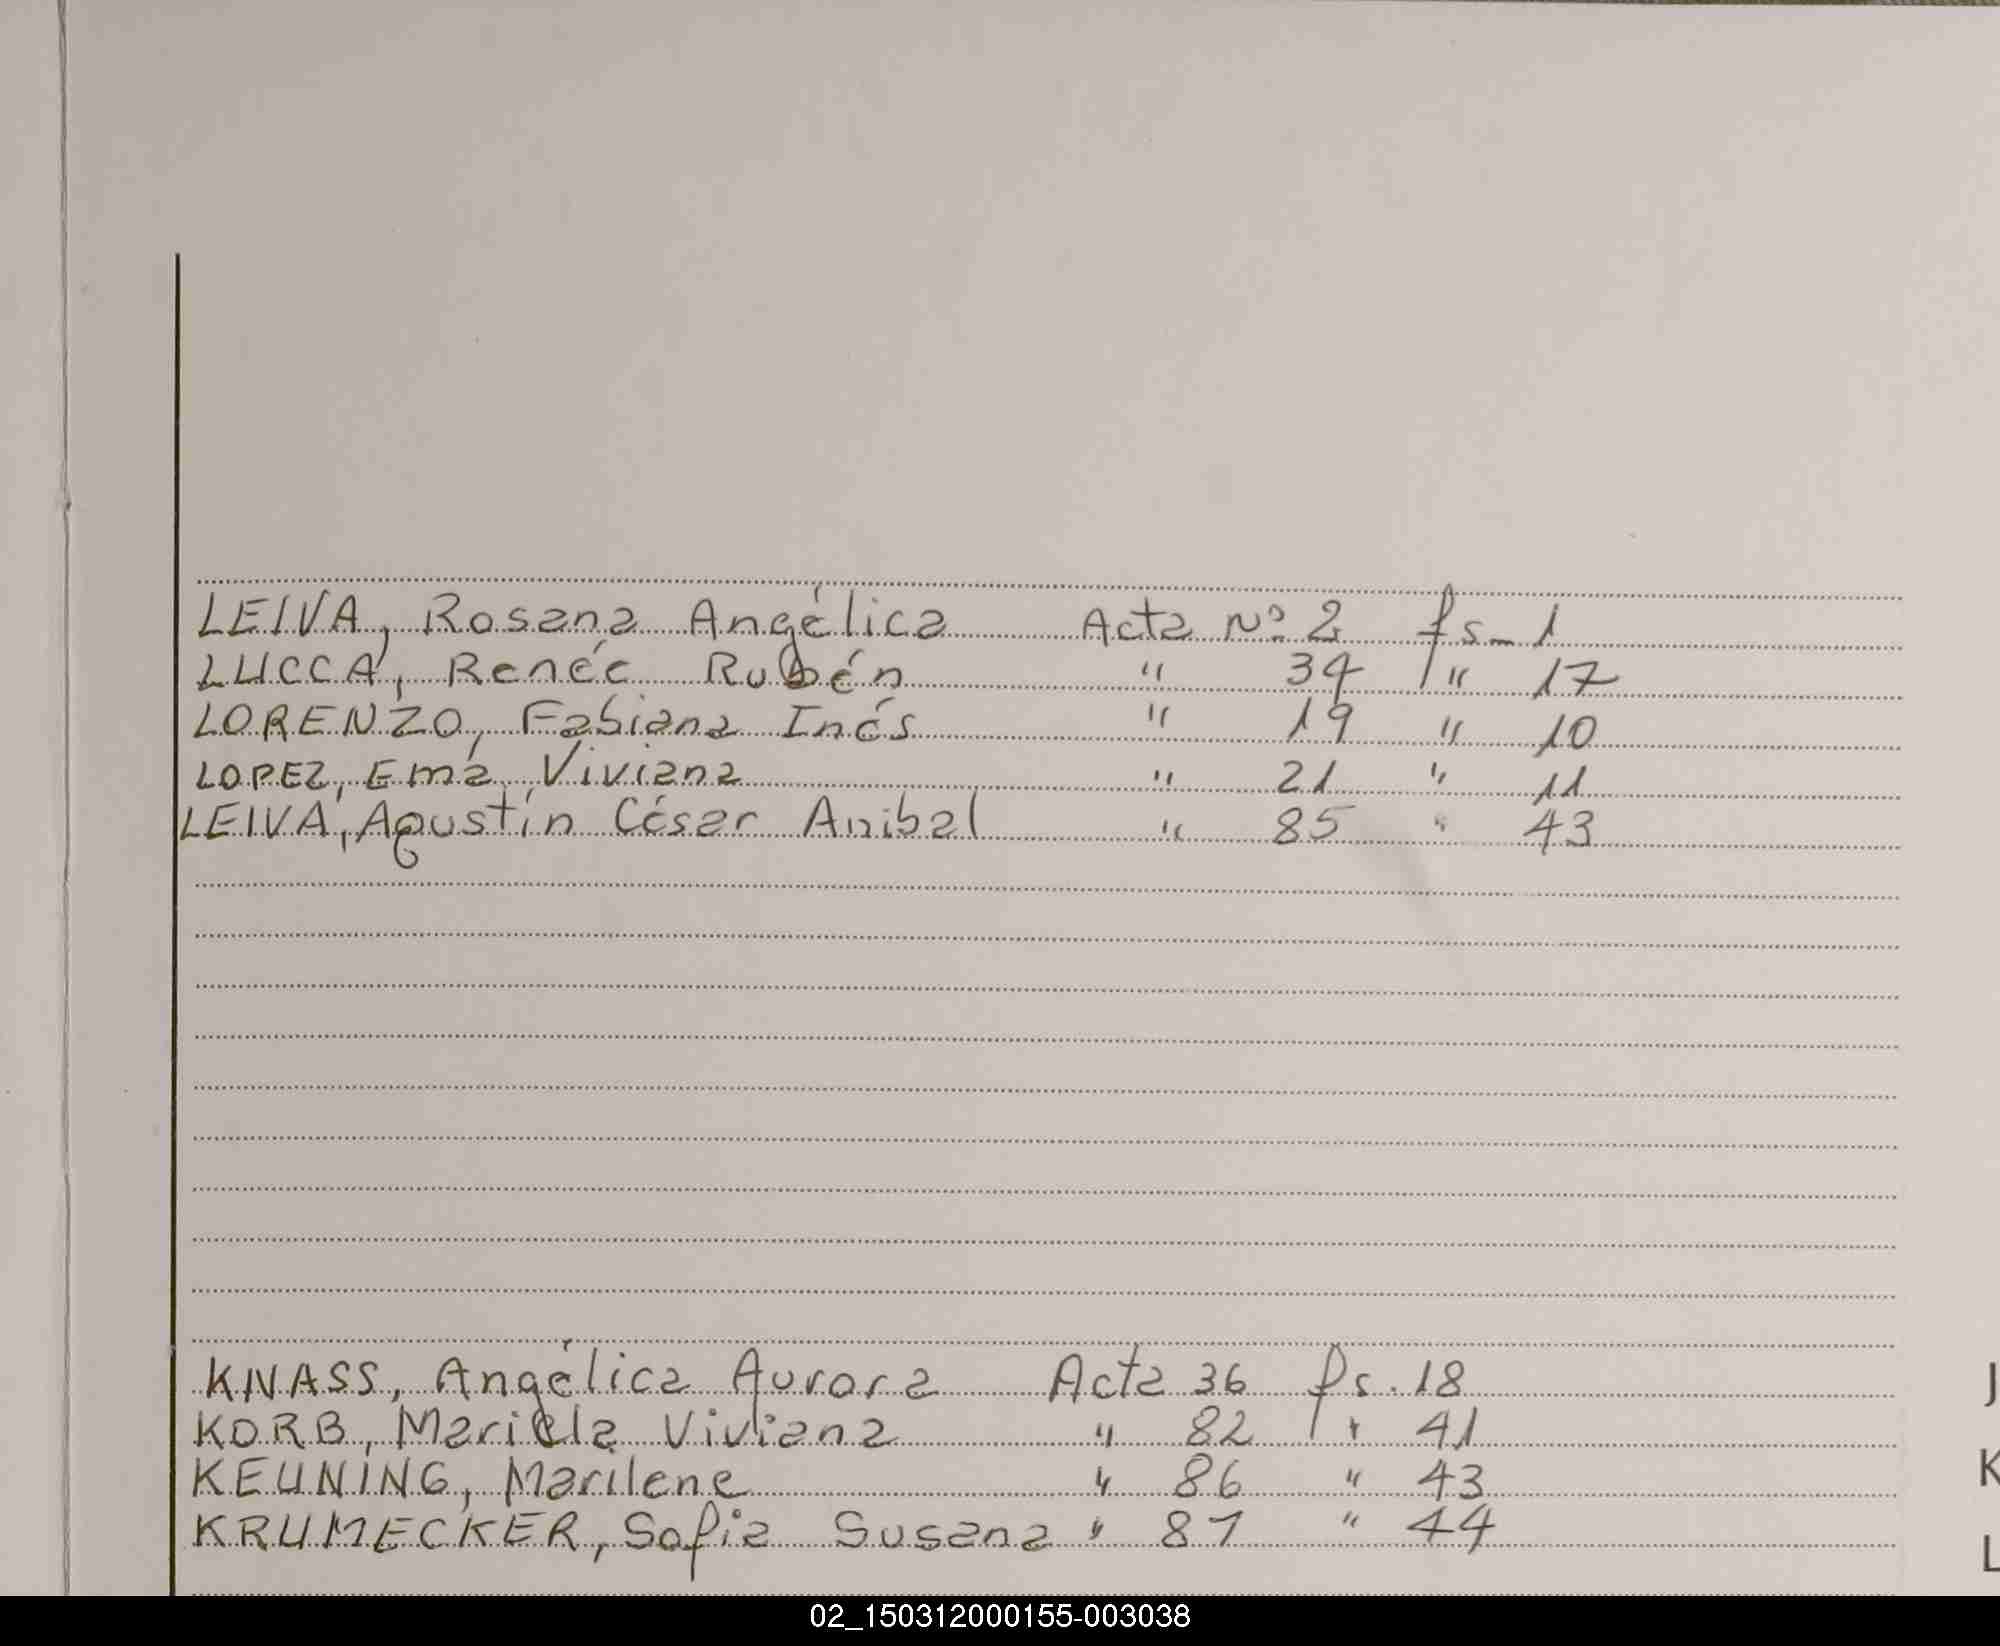 LEIVA, Rosana Angélica Acta Nº 2 fs- 1
LUCCA, Renée Rubén " 34 " 17
LORENZO, Fabiana Inés " 19 " 10
LOPEZ, Ema Viviana " 21 " 11
LEIVA, Agustín César Anibal " 85 " 43
KNASS, Angélica Aurora Acta 36 fs. 18
KORB, Mariela Viviana " 82 " 41
KEUNING, Marilene " 86 " 43
KRUMECKER, Sofia Susana " 87 " 44
J
K
L
02_150312000155-003038